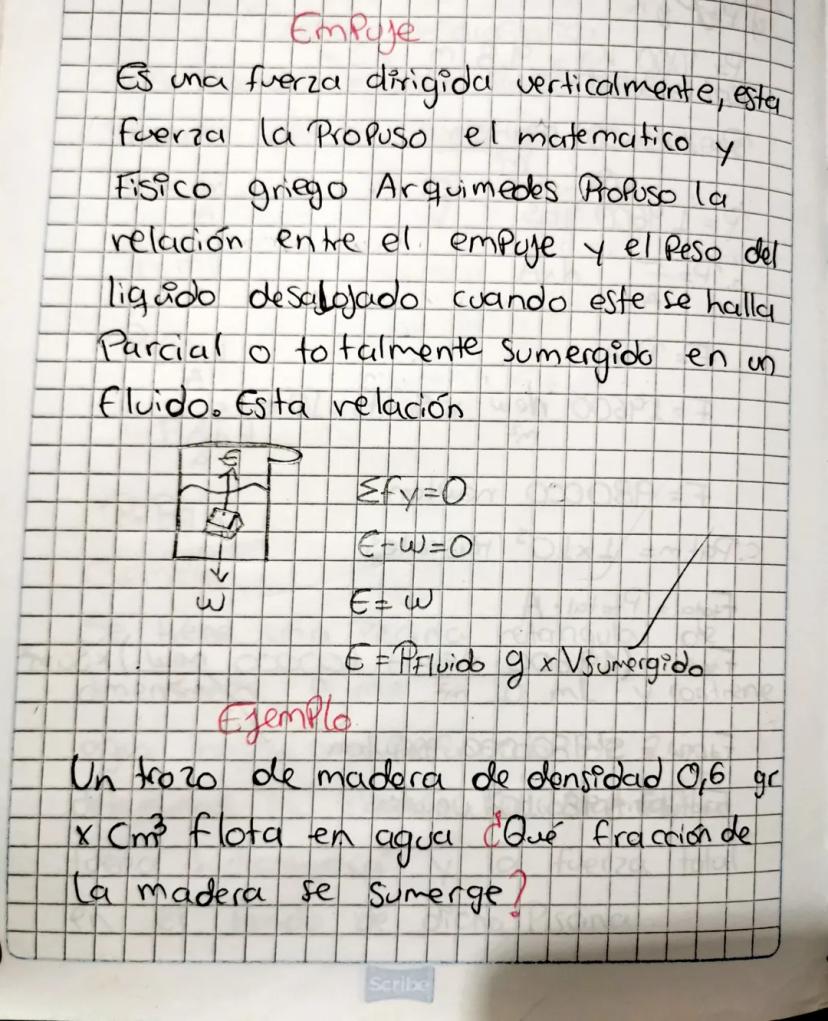 Empuje
Es una fuerza dirigida verticalmente, esta
fuerza la Propuso el matematico y
Fisico griego Arquimedes Propuso la
relación entre el empuje y el Peso del
liquido desalojado cuando este se halla
Parcial o totalmente sumergido en un
fluido. Esta relación
E
W
Σfy=0
E-W=0
E=W
E=PFluido g x Vsumergido
Ejemplo
Un trozo de madera de densidad 0,6 gr
x Cm³ flota en agua ¿Qué fracción de
la madera se sumerge?
Scribe